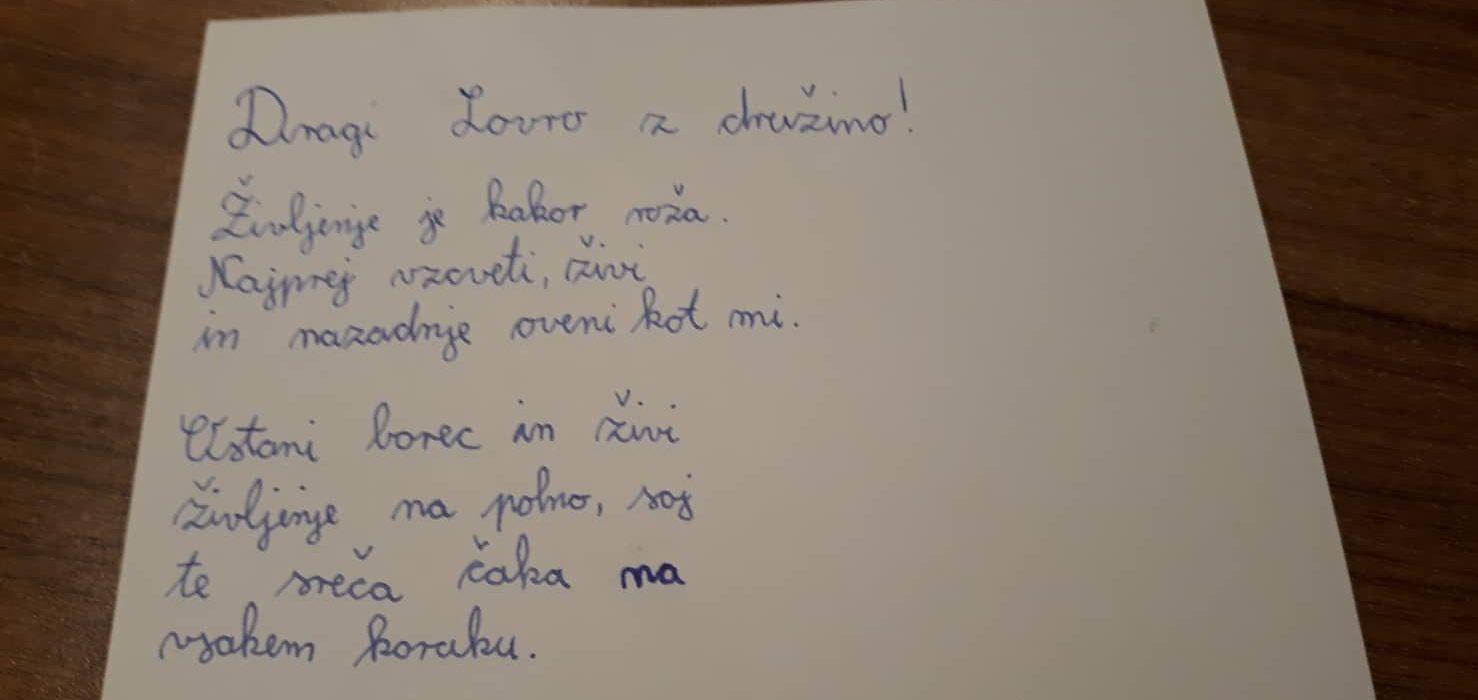 Dragi Lovro z družino!
Življenje je kakor roža.
Najprej vzcveti, živi
in nazadnje oveni kot mi.
Ostani borec in živi
življenje na polno, saj
te sreča čaka na
vsakem koraku.